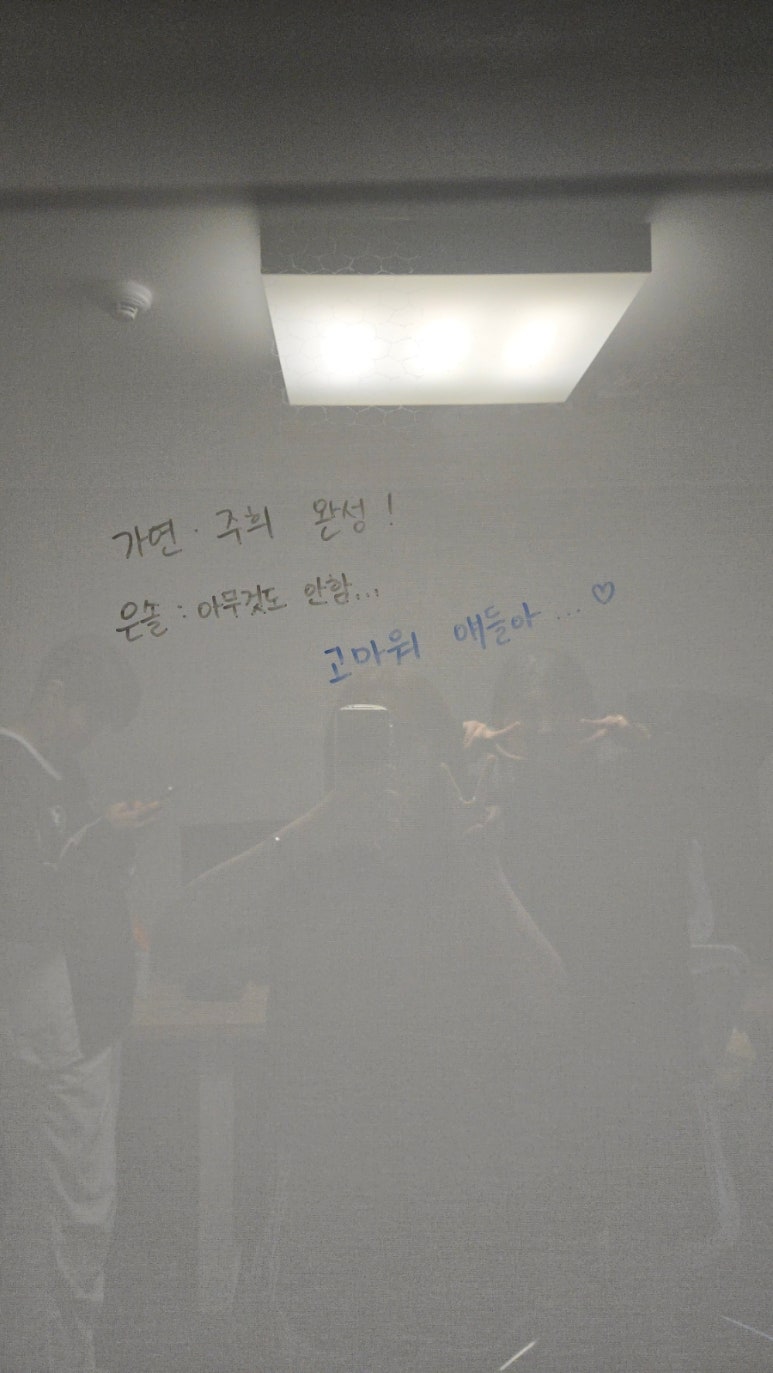 가연 · 주희 완성!
은솔 : 아무것도 안함...
고마워 얘들아 ... ♡